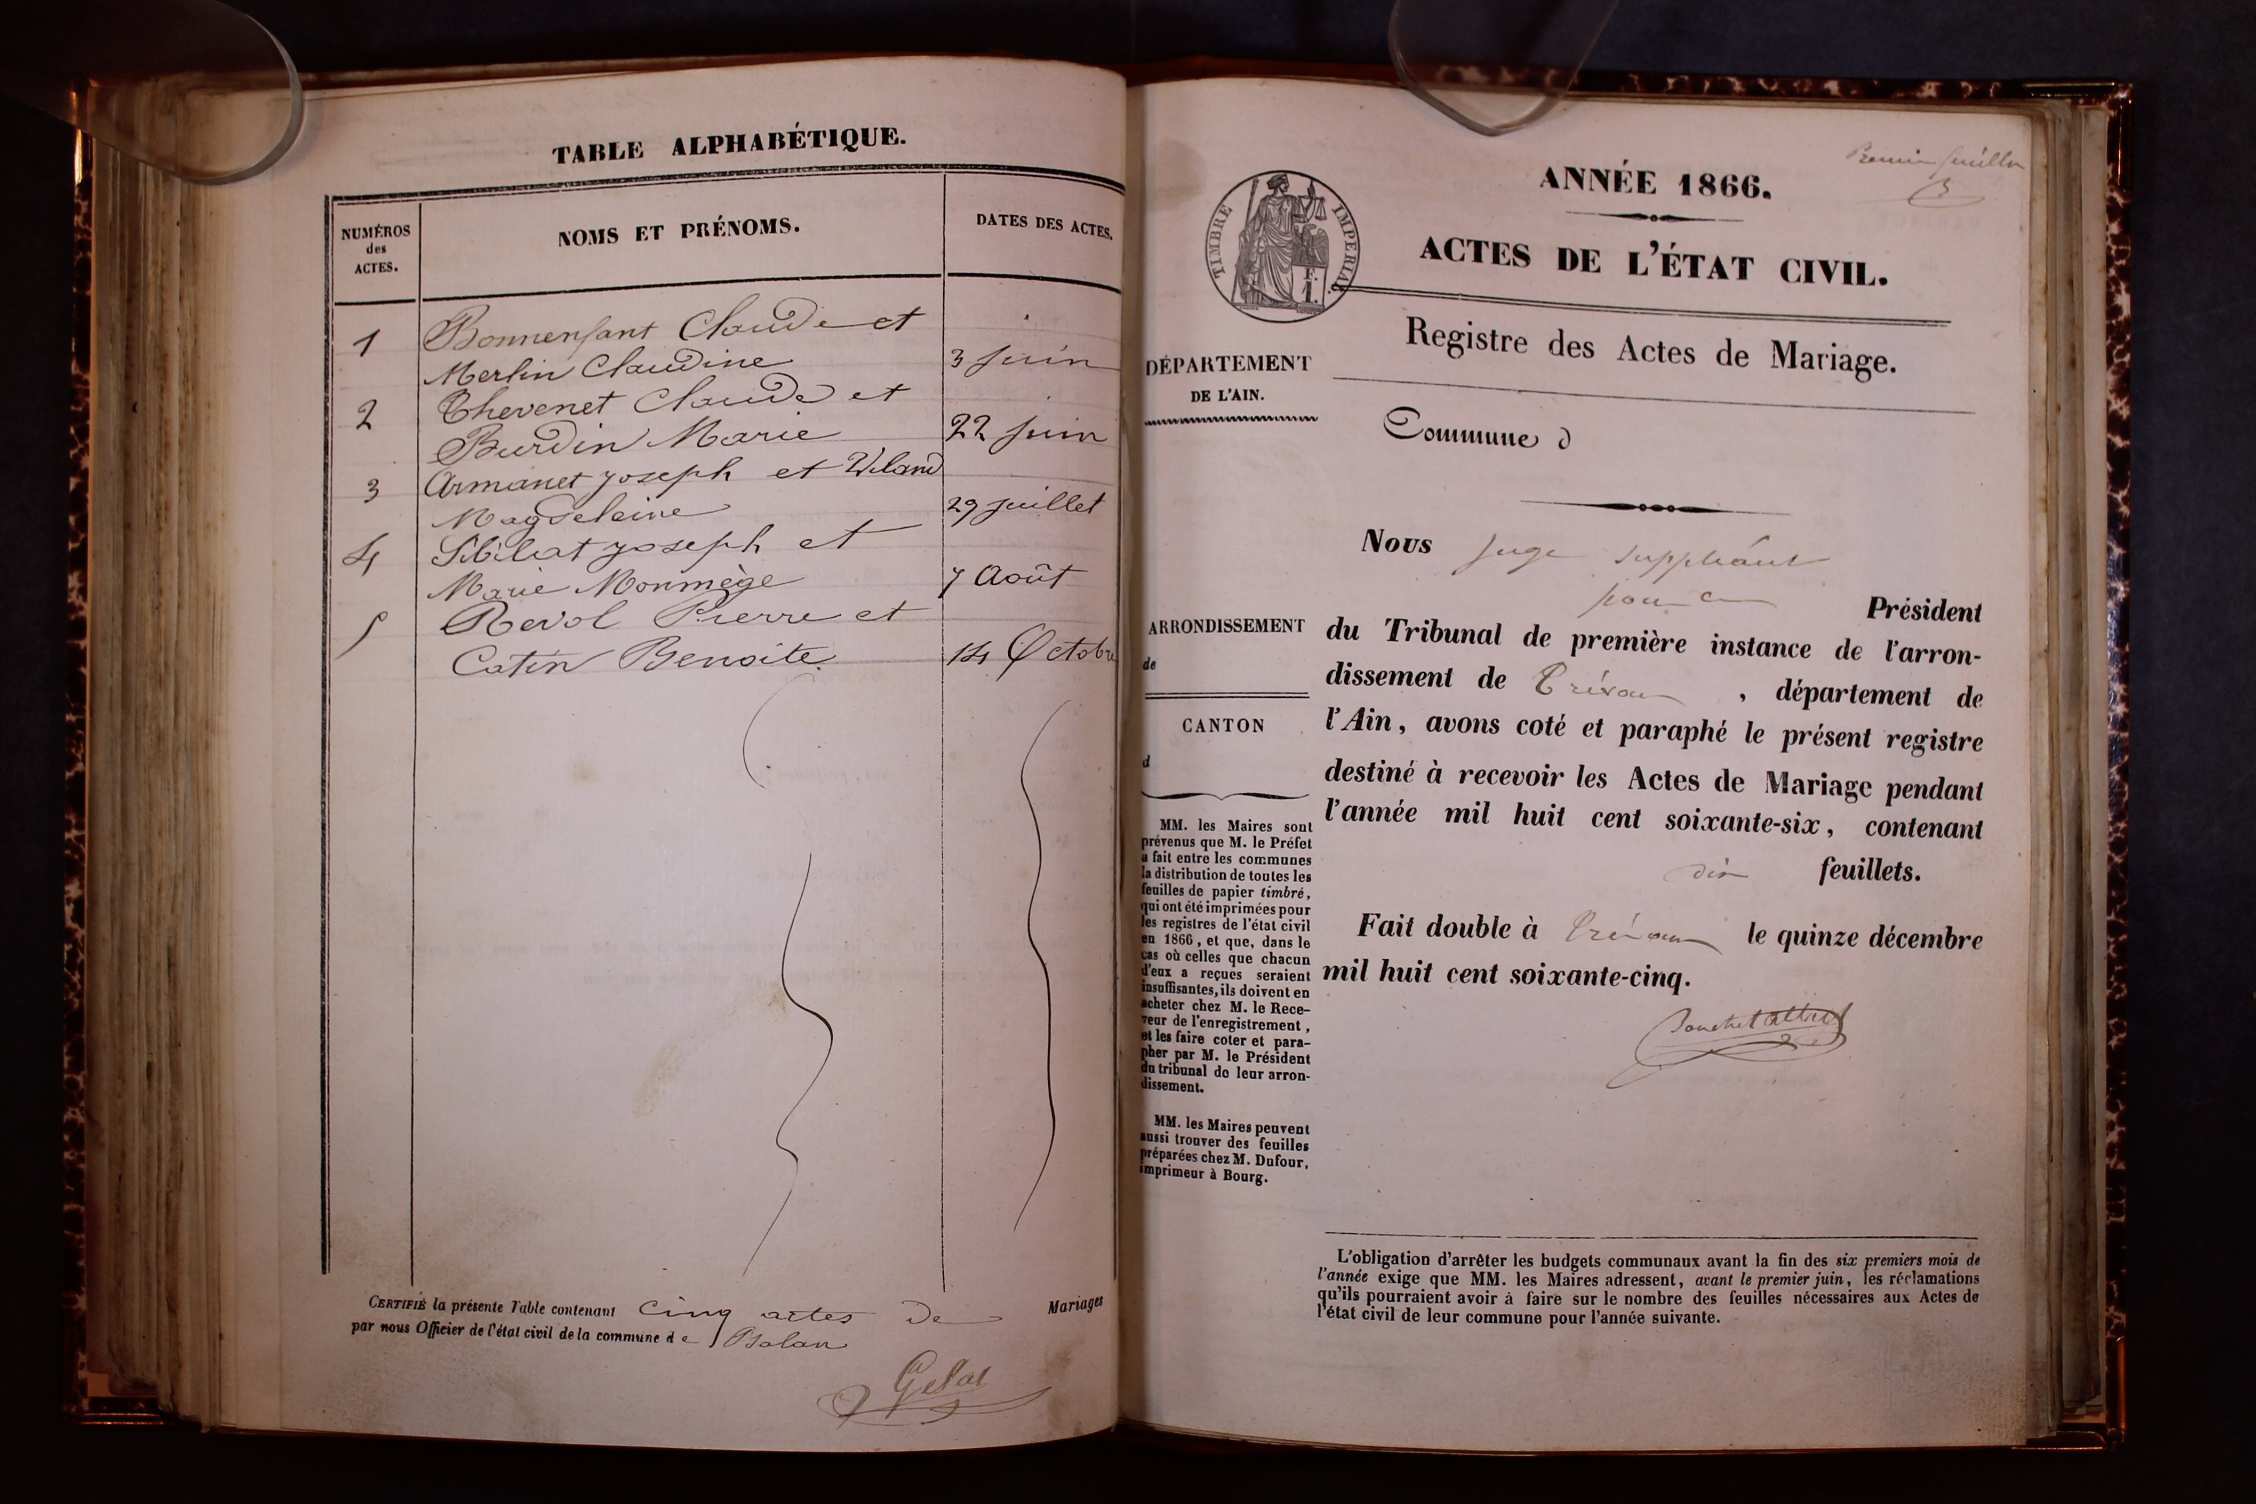 TABLE ALPHABÉTIQUE.
NUMÉROS
des
ACTES.
NOMS ET PRÉNOMS.
DATES DES ACTES.
1 Bonnenfant Claude et
Merlin Claudine 3 Juin
2 Thevenet Claude et
Burdin Marie 22 Juin
3 Armanet Joseph et
Magdeleine 29 juillet
4 Sibilat Joseph et
Marie Monmège 7 Août
5 Revol Pierre et
Catin Benoite 14 Octobre
CERTIFIÉ la présente Table contenant cinq actes de Mariages
par nous Officier de l'état civil de la commune de Balan
Gelas
Premier feuillet
ANNÉE 1866.
ACTES DE L'ÉTAT CIVIL.
TIMBRE IMPERIAL
F.
1.
Registre des Actes de Mariage.
DÉPARTEMENT
DE L'AIN.
Commune d
Nous Juge Suppléant
pour Président
ARRONDISSEMENT
de
CANTON
d
du Tribunal de première instance de l'arron-
dissement de Trévoux, département de
l'Ain, avons coté et paraphé le présent registre
destiné à recevoir les Actes de Mariage pendant
l'année mil huit cent soixante-six, contenant
dix feuillets.
Fait double à Trévoux le quinze décembre
mil huit cent soixante-cinq.
MM. les Maires sont
prévenus que M. le Préfet
a fait entre les communes
la distribution de toutes les
feuilles de papier timbré,
qui ont été imprimées pour
les registres de l'état civil
en 1866, et que, dans le
cas où celles que chacun
d'eux a reçues seraient
insuffisantes, ils doivent en
acheter chez M. le Rece-
veur de l'enregistrement,
et les faire coter et para-
pher par M. le Président
du tribunal de leur arron-
dissement.
MM. les Maires peuvent
aussi trouver des feuilles
préparées chez M. Dufour,
imprimeur à Bourg.
L'obligation d'arrêter les budgets communaux avant la fin des six premiers mois de
l'année exige que MM. les Maires adressent, avant le premier juin, les réclamations
qu'ils pourraient avoir à faire sur le nombre des feuilles nécessaires aux Actes de
l'état civil de leur commune pour l'année suivante.